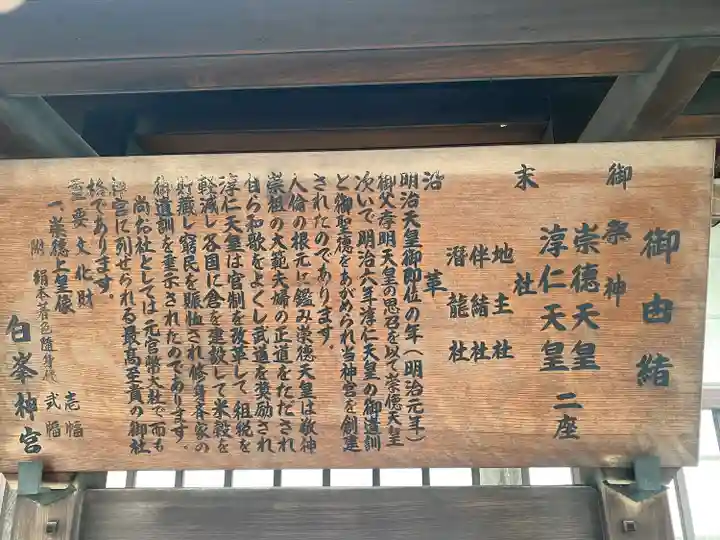 御由緒
御祭神
崇德天皇
淳仁天皇
二座
末社
地主社
伴緒社
潜龍社
沿革
明治天皇御即位の年(明治元年)
御父孝明天皇の思召を以て崇德天皇
次いで明治六年淳仁天皇の御遺訓
と御聖徳をあがめられ当神宮を創建
されたのであります。
人倫の根元に鑑み崇德天皇は敬神
崇祖の大範夫婦の正道をたたされ
甘ら和歌をよくし武道を奨励され
淳仁天皇は官制を改革して租税を
軽減し各国に倉を建設して米穀を
貯蔵し窮民を賑恤され修身斉家の
御遺訓を垂示されたのであります。
尚お社としては元官幣大社で而も
神宮に列せられる最高至貴の御社
格であります。
重要文化財
一、崇德上皇像 壱幅
附 絹本着色随身像 弐幅
白峯神宮